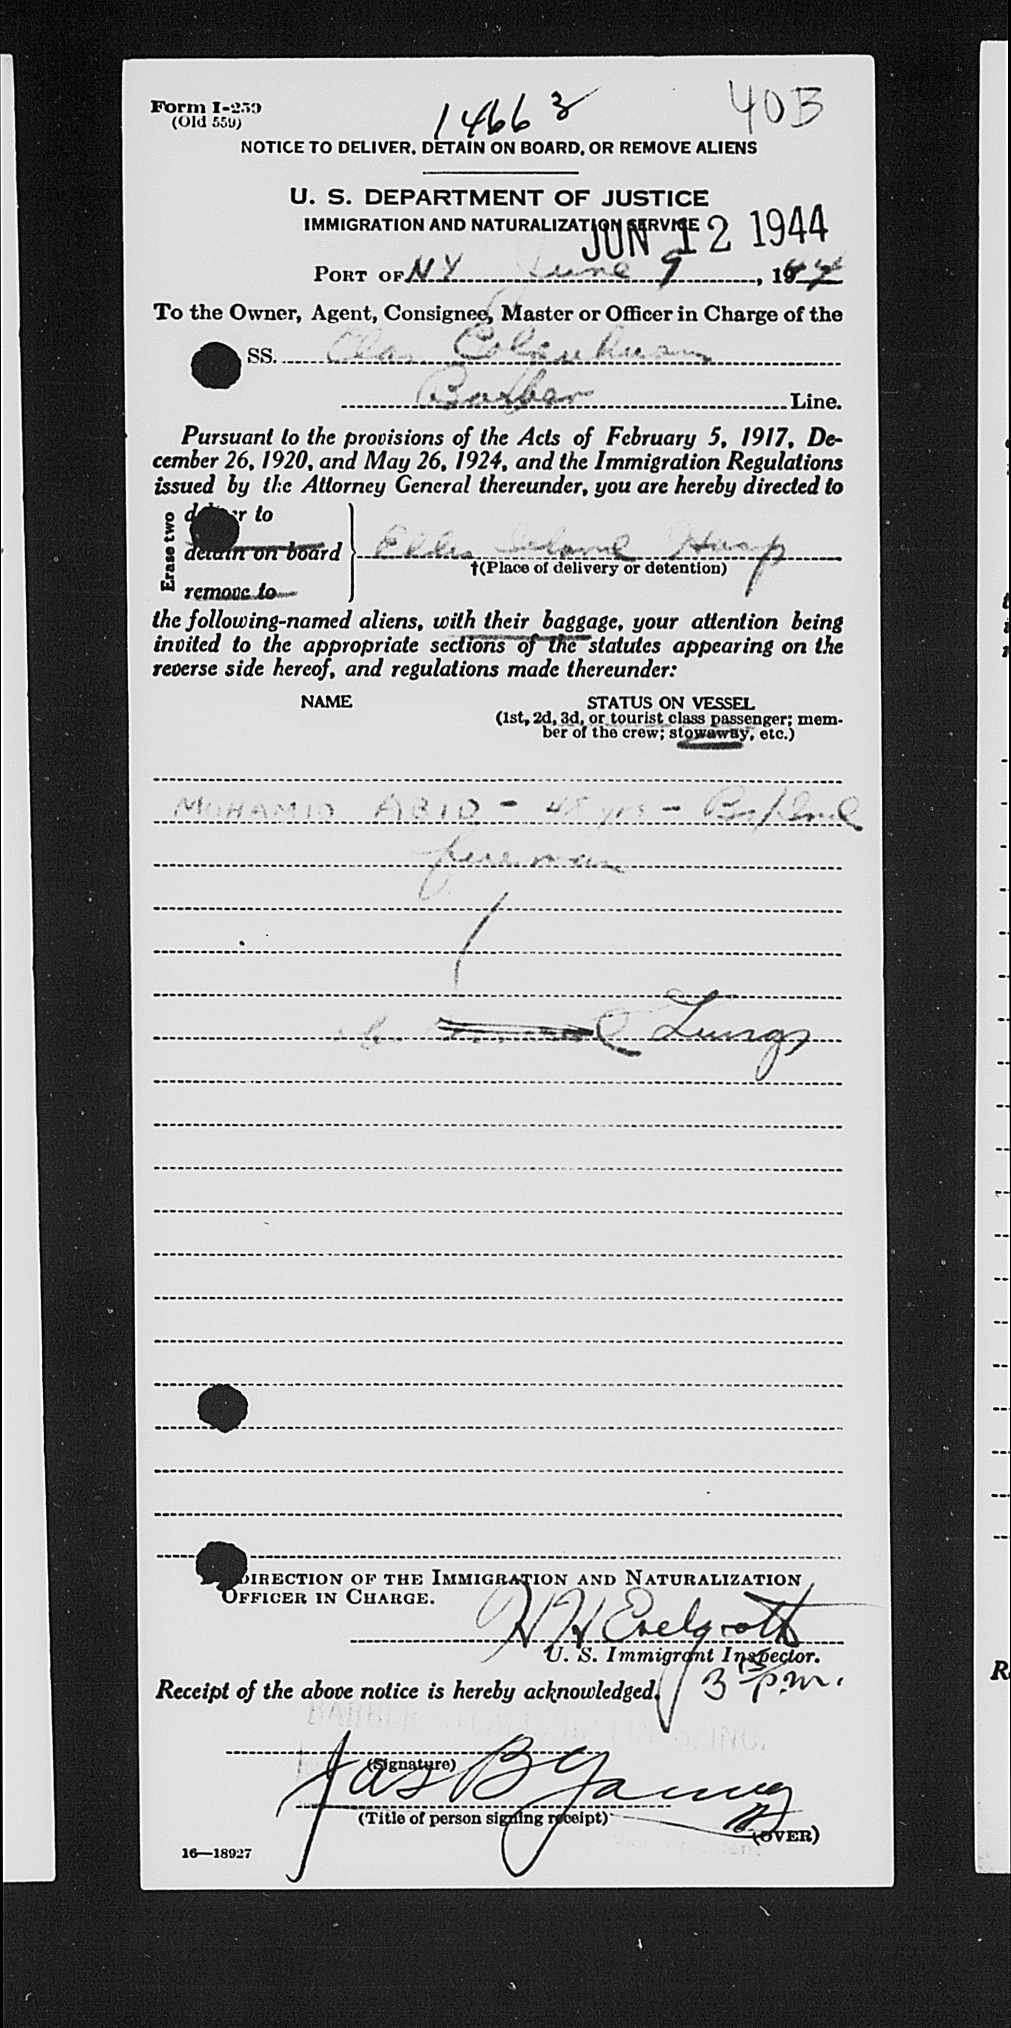 Form I-259
(Old 559)
14663
40B
NOTICE TO DELIVER, DETAIN ON BOARD, OR REMOVE ALIENS
U. S. DEPARTMENT OF JUSTICE
IMMIGRATION AND NATURALIZATION SERVICE
JUN 12 1944
PORT OF NY June 9, 1944
To the Owner, Agent, Consignee, Master or Officer in Charge of the
SS.
Barber Line.
Pursuant to the provisions of the Acts of February 5, 1917, De-
cember 26, 1920, and May 26, 1924, and the Immigration Regulations
issued by the Attorney General thereunder, you are hereby directed to
Erase two
deliver to
detain on board
remove to
Ellis Island Hosp
†(Place of delivery or detention)
the following-named aliens, with their baggage, your attention being
invited to the appropriate sections of the statutes appearing on the
reverse side hereof, and regulations made thereunder:
NAME
STATUS ON VESSEL
(1st, 2d, 3d, or tourist class passenger; mem-
ber of the crew; stowaway, etc.)
MOHAMID ABID - 45 yrs -
fireman
Lungs
DIRECTION OF THE IMMIGRATION AND NATURALIZATION
OFFICER IN CHARGE.
U. S. Immigrant Inspector.
3 15 p.m.
Receipt of the above notice is hereby acknowledged.
(Signature)
Jas B
(Title of person signing receipt)
(OVER)
16—18927
R